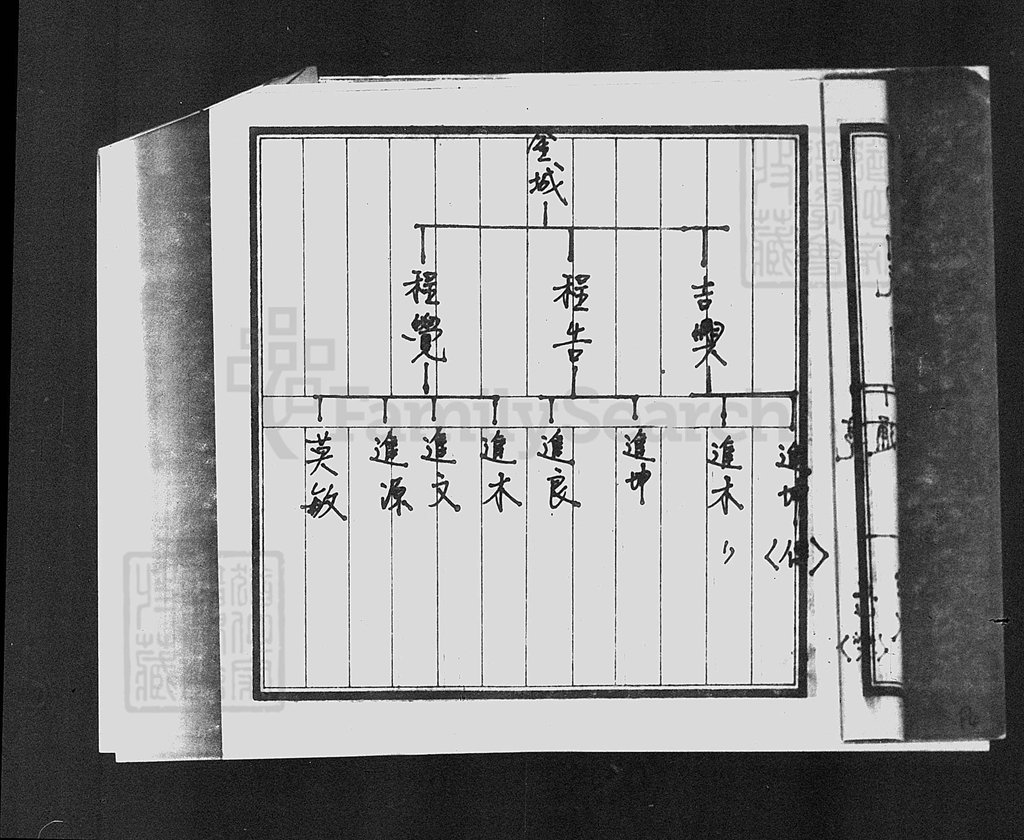 金城
吉興
程告
程覺
進坤
進木
進坤
進良
進木
進文
進源
英敏
FamilySearch